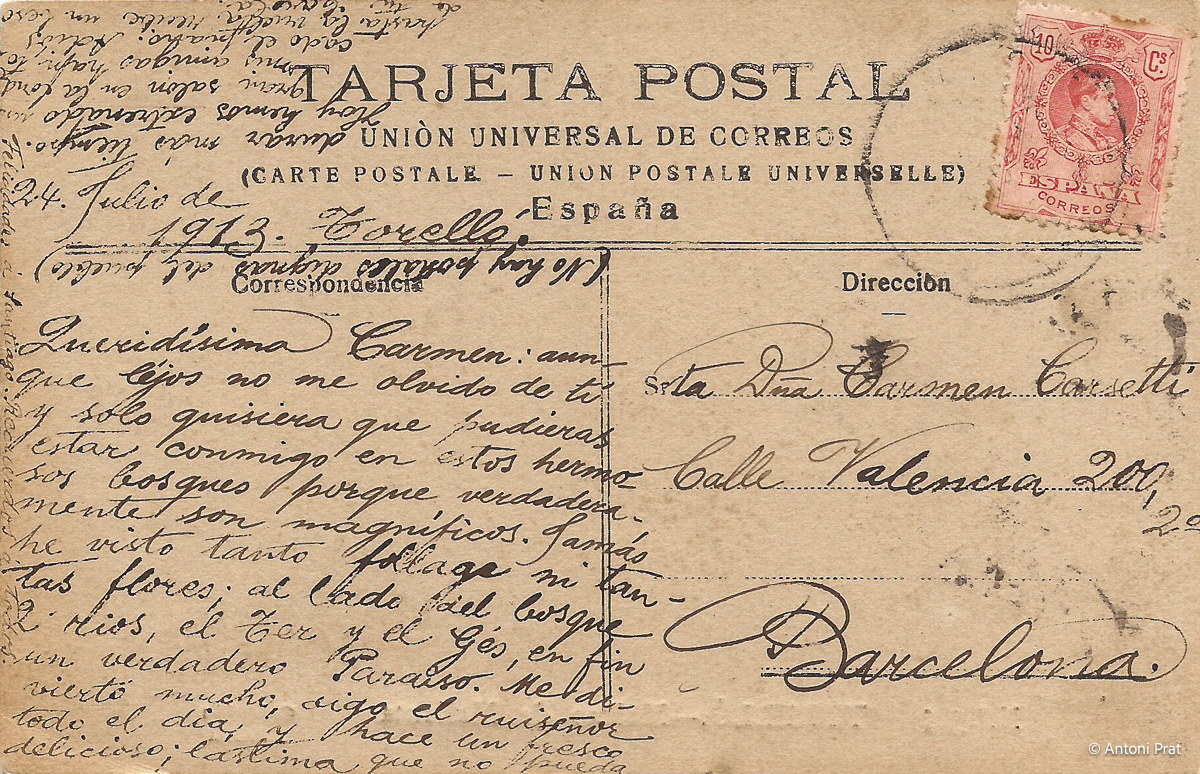 TARJETA POSTAL
UNIÒN UNIVERSAL DE CORREOS
(CARTE POSTALE - UNION POSTALE UNIVERSELLE)
España
10 Cs.
ESPAÑA
CORREOS
24. Julio de
1913. Torelló.
(No hay postales dignas del pueblo)
Correspondencia
Queridísima Carmen: aun-
que léjos no me olvido de ti
y solo quisiera que pudieras
estar conmigo en estos hermo-
sos bosques porque verdadera-
mente son magníficos. Jamás
he visto tanto follage ni tan-
tas flores; al lado del bosque
2 rios, el Ter y el Gés, en fin
un verdadero Paraiso. Me di-
vierto mucho, oigo el ruiseñor
todo el dia, y hace un fresco
delicioso; lastima que no pueda
durar más tiempo.
Hoy hemos estrenado un
gran salón en la fonda
mis amigas han to-
cado el piano. Adios
hasta la vuelta recibe un beso
de tu
Felicidades á Santiago. Recuerdos á todos.
Dirección
Srta Dña Carmen Corsetti
Calle Valencia 200, 2º
Barcelona.
© Antoni Prat